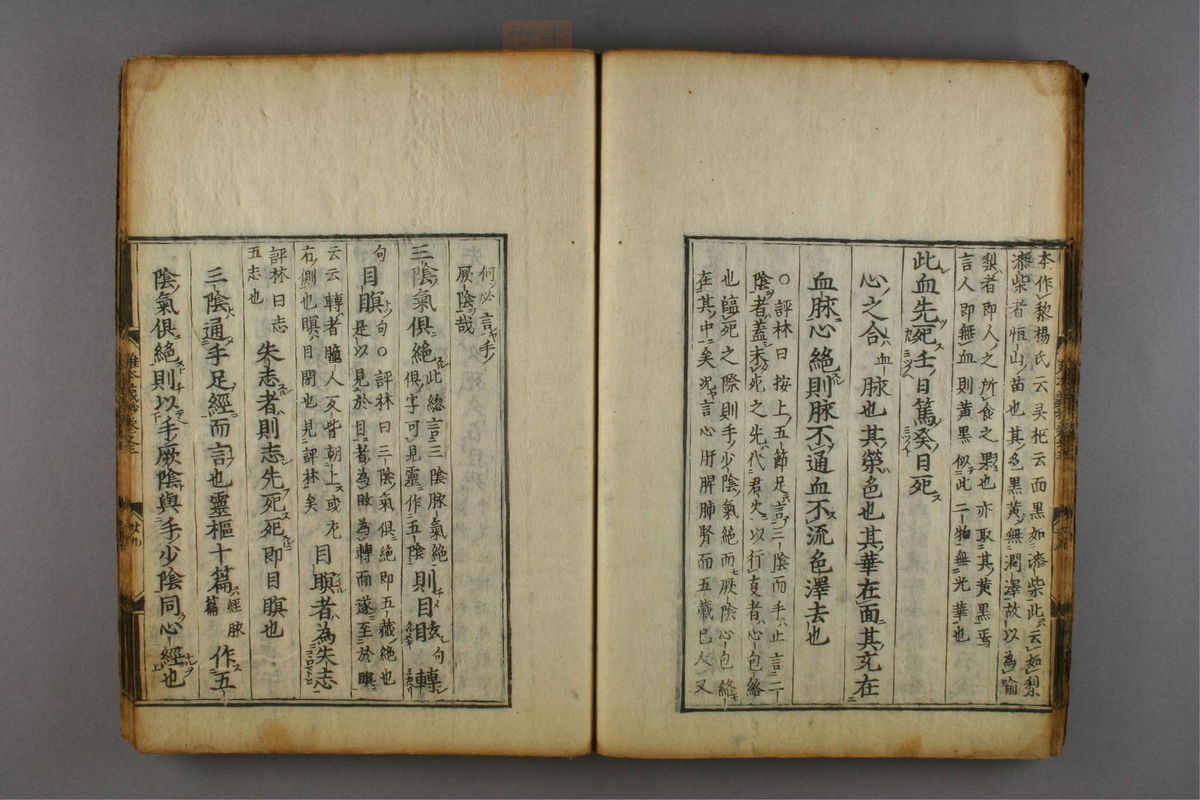 本作黎楊氏云灵枢云面黒如漆柴此云如梨
漆柴者恒山苗也其色黒黄無潤澤故以為喻
梨者即人之所食之果也亦取其黄黒焉
言人即無血則黄黒似此二物無光華也
此血先死壬日篤癸日死
心之合血脉也其榮色也其華在面其充在
血脉心絶則脉不通血不流色澤去也
○評林曰按上五節足言三陰而手止言二
陰者蓋未死之先代君火以行㕝者心包絡
也臨死之際則手少陰氣絶而厥陰心包絡
在其中矣况言心肝脾肺腎而五藏已人又
何必言手
厥陰哉
三陰氣俱絶此総言三陰脉氣絶
俱字可見靈作五陰則目眩句轉
句目瞑是以見於目者為眩為轉而遂至於瞑
句○評林曰三陰氣俱絶即五藏絶也
云云轉者瞳人反背朝上或左
右側也瞑目閉也見評林矣目瞑者為失志
評林曰志
五志也失志者則志先死死即目瞑也
三陰通手足經而言也靈樞十篇經脉
篇作五
陰氣俱絶則以手厥陰與手少陰同心經也